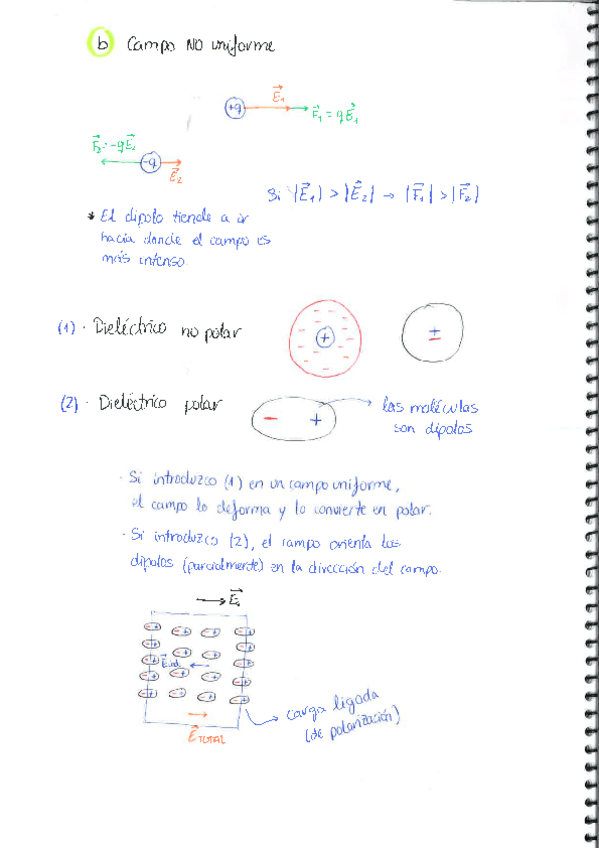 b Campo NO uniforme
+q E₁ F₁ = qE₁
F₂ = -qE₂ -q E₂
Si |E₁| > |E₂| → |F₁| > |F₂|
* El dipolo tiende a ir
hacia donde el campo es
más intenso.
(1) · Dieléctrico no polar
(2) · Dieléctrico polar
las moléculas
son dipolos
· Si introduzco (1) en un campo uniforme,
el campo lo deforma y lo convierte en polar.
· Si introduzco (2), el campo orienta los
dipolos (parcialmente) en la dirección del campo.
E₀
E ind
E TOTAL
carga ligada
(de polarización)